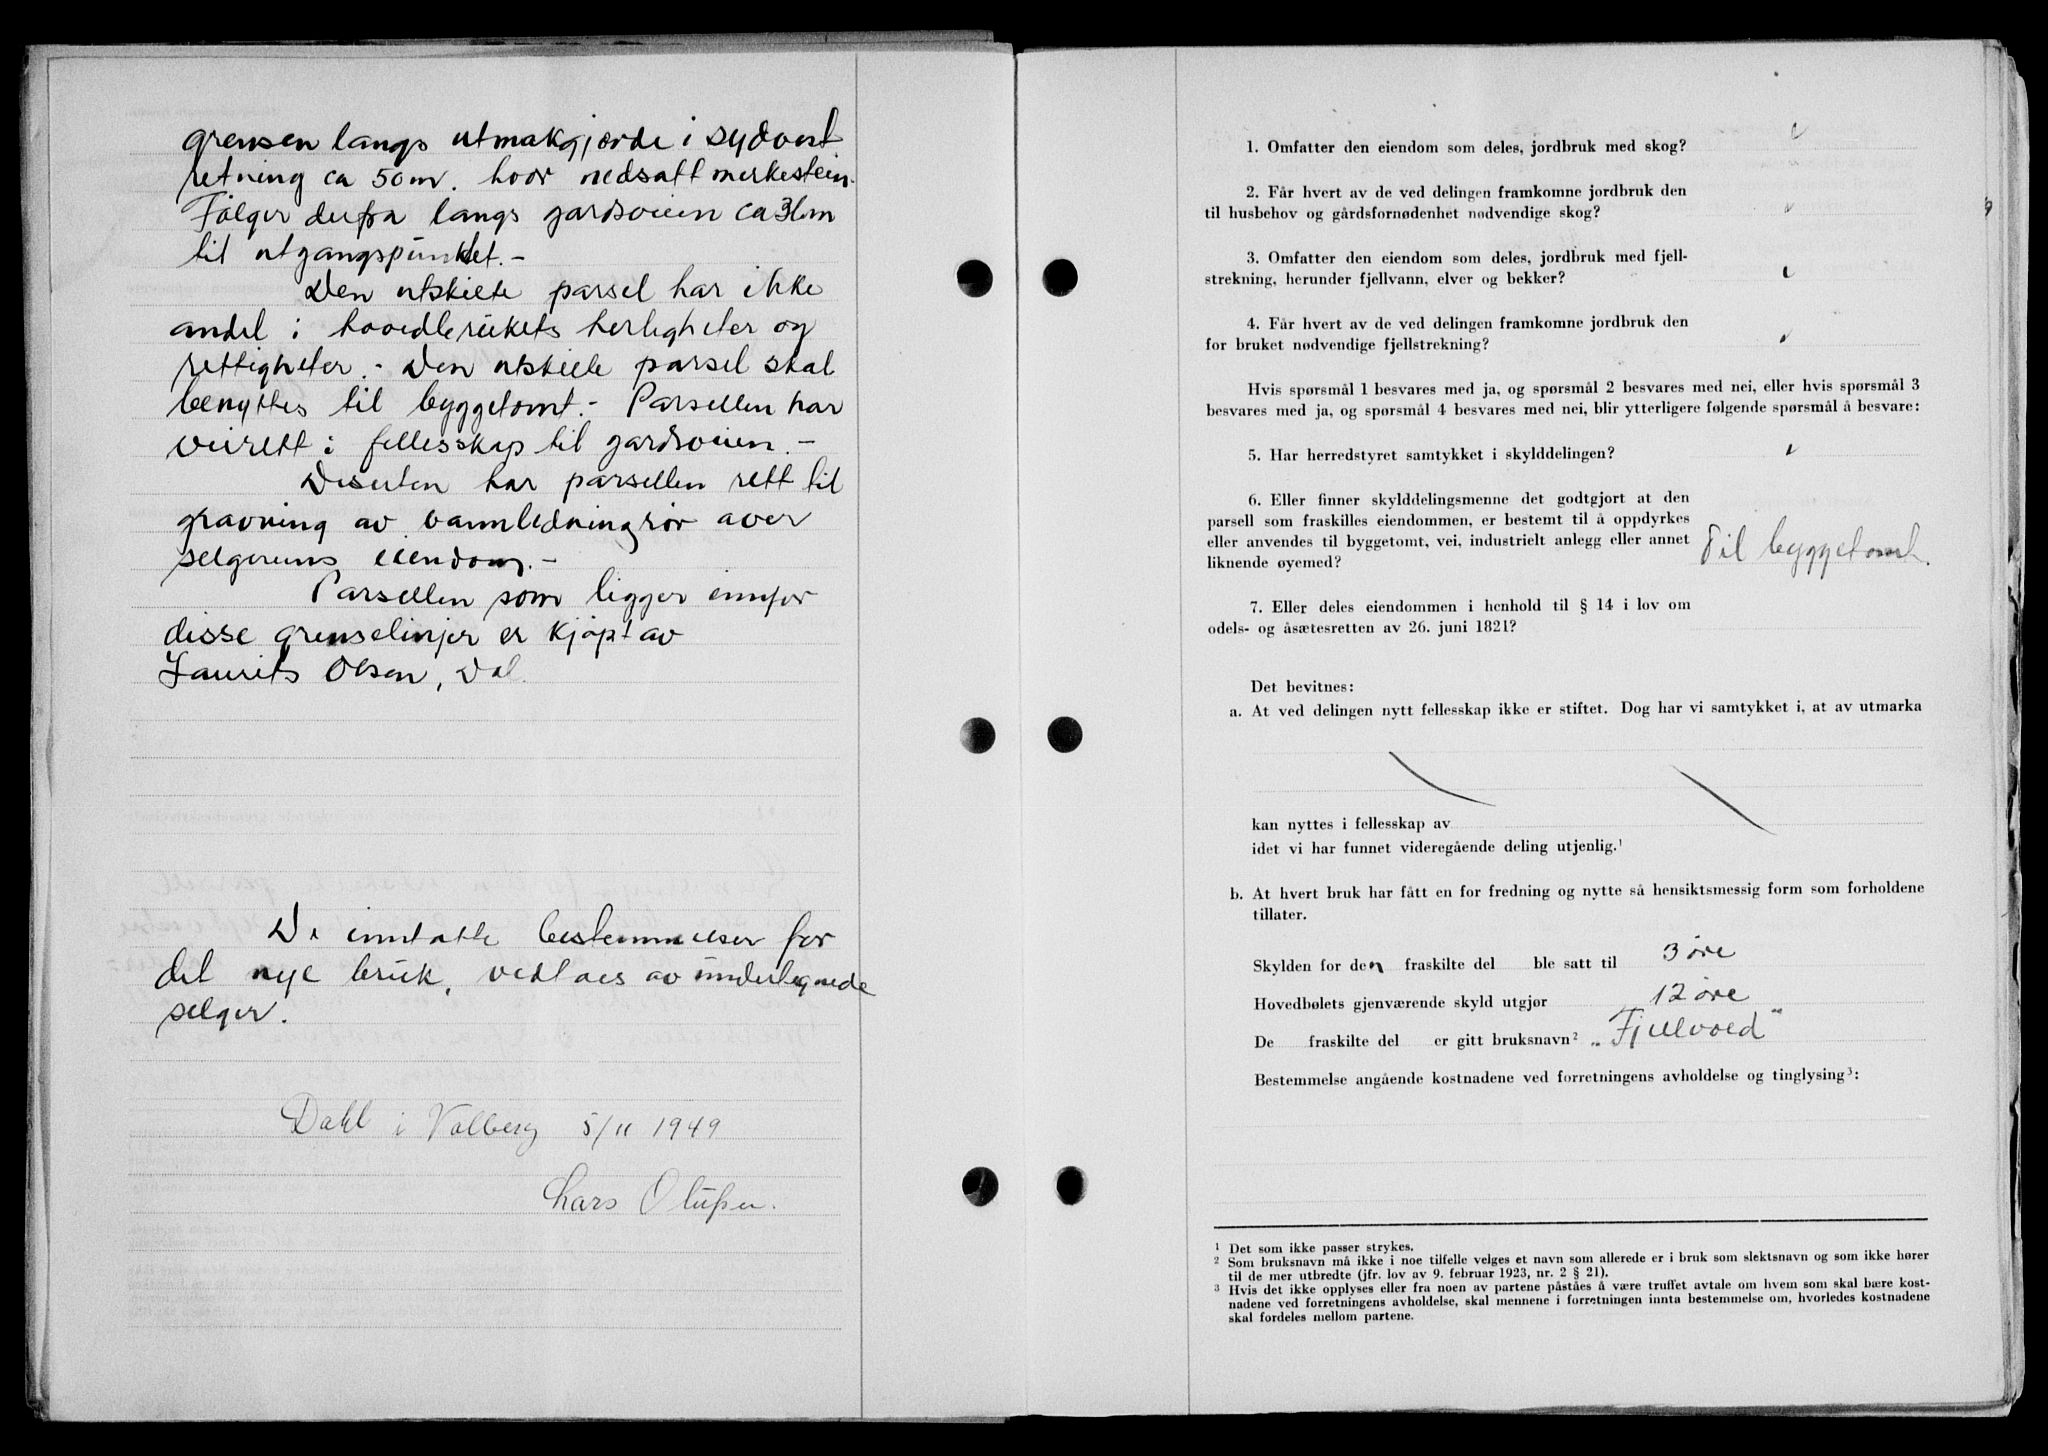 grensen langs utmakgjerde i sydvest
retning ca 50 m. hvor nedsatt merkestein.
Følger derfra langs gardsveien ca 36 m
til utgangspunktet.-
Den utskilte parsel har ikke
andel i hovedbrukets herligheter og
rettigheter.- Den utskilte parsel skal
benyttes til byggetomt.- Parsellen har
veirett i fellesskap til gardsveien.-
Desuten har parsellen rett til
gravning av vannledningsrør over
selgerens eiendom.-
Parsellen som ligger innfor
disse grenselinjer er kjøpt av
Laurits Olsen, Dal.
De inntatte bestemmelser for
det nye bruk, vedtaes av underlegnede
selger.
Dahl i Valberg 5/11 1949
Lars Olufsen.
1. Omfatter den eiendom som deles, jordbruk med skog?
2. Får hvert av de ved delingen framkomne jordbruk den
til husbehov og gårdsfornødenhet nødvendige skog?
3. Omfatter den eiendom som deles, jordbruk med fjell-
strekning, herunder fjellvann, elver og bekker?
4. Får hvert av de ved delingen framkomne jordbruk den
for bruket nødvendige fjellstrekning?
Hvis spørsmål 1 besvares med ja, og spørsmål 2 besvares med nei, eller hvis spørsmål 3
besvares med ja, og spørsmål 4 besvares med nei, blir ytterligere følgende spørsmål å besvare:
5. Har herredstyret samtykket i skylddelingen?
6. Eller finner skylddelingsmenne det godtgjort at den
parsell som fraskilles eiendommen, er bestemt til å oppdyrkes
eller anvendes til byggetomt, vei, industrielt anlegg eller annet
liknende øyemed? Til byggetomt.
7. Eller deles eiendommen i henhold til § 14 i lov om
odels- og åsætesretten av 26. juni 1821?
Det bevitnes:
a. At ved delingen nytt fellesskap ikke er stiftet. Dog har vi samtykket i, at av utmarka
kan nyttes i fellesskap av
idet vi har funnet videregående deling utjenlig.¹
b. At hvert bruk har fått en for fredning og nytte så hensiktsmessig form som forholdene
tillater.
Skylden for den fraskilte del ble satt til 3 øre
Hovedbølets gjenværende skyld utgjør 12 øre
De fraskilte del er gitt bruksnavn² „Fjellvold"
Bestemmelse angående kostnadene ved forretningens avholdelse og tinglysing³:
¹ Det som ikke passer strykes.
² Som bruksnavn må ikke i noe tilfelle velges et navn som allerede er i bruk som slektsnavn og som ikke hører
til de mer utbredte (jfr. lov av 9. februar 1923, nr. 2 § 21).
³ Hvis det ikke opplyses eller fra noen av partene påståes å være truffet avtale om hvem som skal bære kost-
nadene ved forretningens avholdelse, skal mennene i forretningen innta bestemmelse om, hvorledes kostnadene
skal fordeles mellom partene.